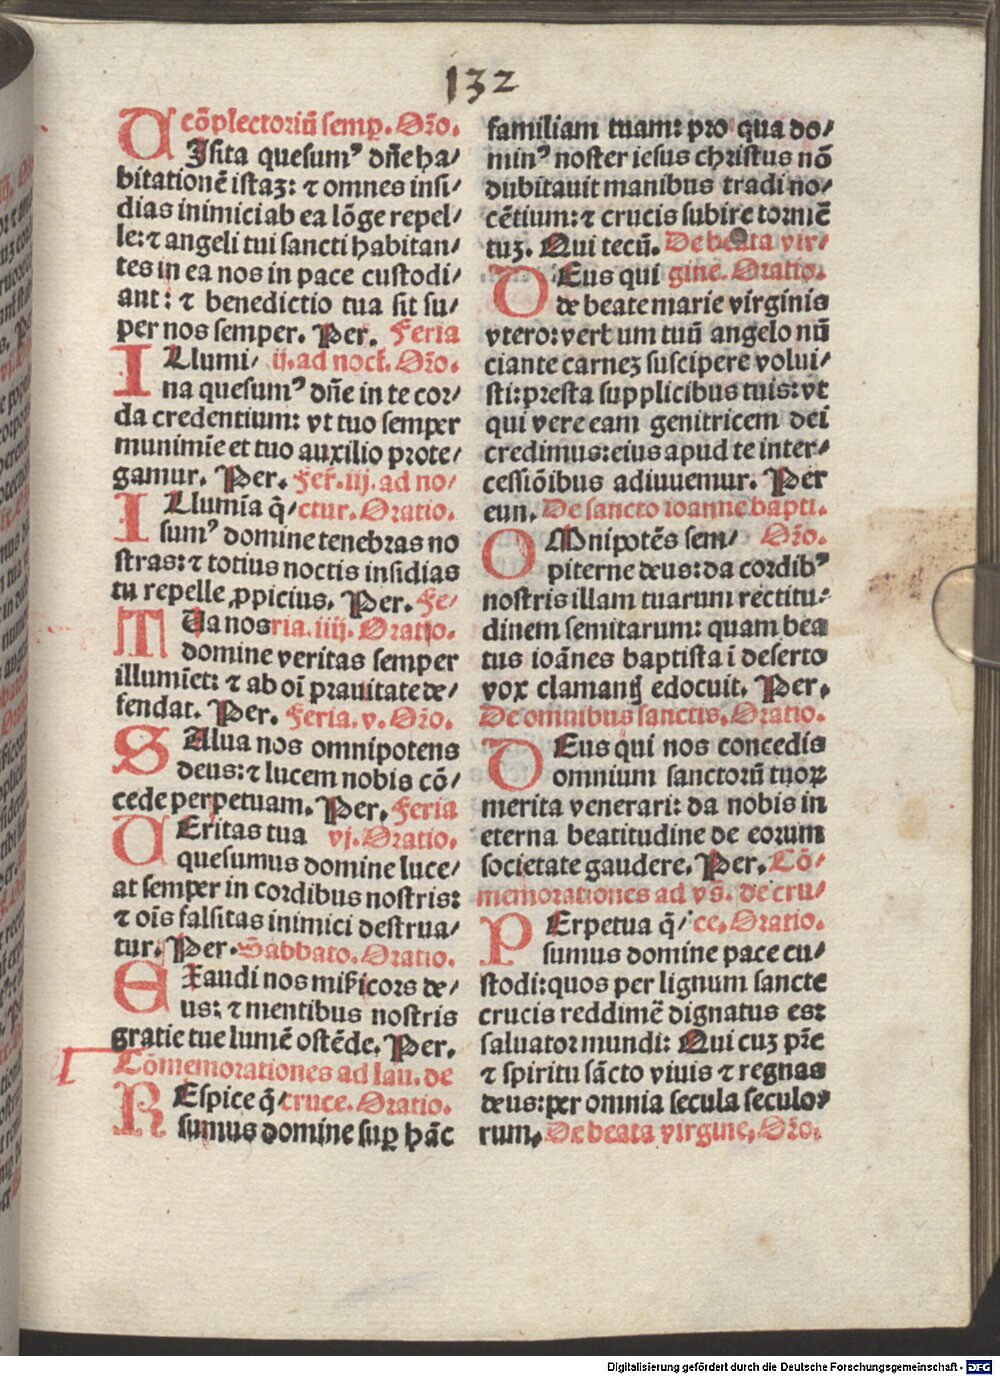 132
cōplectoriū semp. Orō.
VIsita quesumꝰ dñe ha/
bitationē istaꝫ: ⁊ omnes insi/
dias inimici ab ea lōge repel/
le: ⁊ angeli tui sancti habitan/
tes in ea nos in pace custodi/
ant: ⁊ benedictio tua sit su/
per nos semper. Per. Feria
ILlumi/ ij. ad noct. Orō.
na quesumꝰ dñe in te cor/
da credentium: vt tuo semper
munimīe et tuo auxilio prote/
gamur. Per. Fer̄. iij. ad no/
ILlumīa q̄/ ctur. Oratio.
sumꝰ domine tenebras no
stras: ⁊ totius noctis insidias
tu repelle ꝓpicius. Per. Fe/
TUa nos ria. iiij. Oratio.
domine veritas semper
illumīet: ⁊ ab oī prauitate de/
fendat. Per. Feria. v. Orō.
SAlua nos omnipotens
deus: ⁊ lucem nobis cō/
cede perpetuam. Per. Feria
VEritas tua vj. Oratio.
quesumus domine luce/
at semper in cordibus nostris:
⁊ oīs falsitas inimici destrua/
tur. Per. Sabbato. Oratio.
EXaudi nos mīsicors de/
us: ⁊ mentibus nostris
gratie tue lumē ostēde. Per.
Cōmemorationes ad lau. de
REspice q̄/ cruce. Oratio.
sumus domine suꝑ hāc
familiam tuam: pro qua do/
minꝰ noster iesus christus nō
dubitauit manibus tradi no/
cētium: ⁊ crucis subire tormē
tuꝫ. Qui tecū. De beata vir/
DEus qui gine. Oratio.
de beate marie virginis
vtero: verbum tuū angelo nū
ciante carneꝫ suscipere volui/
sti: presta supplicibus tuis: vt
qui vere eam genitricem dei
credimus: eius apud te inter/
cessiōibus adiuuemur. Per
eun. De sancto ioanne bapti.
OMnipotēs sem/ Orō.
piterne deus: da cordibꝰ
nostris illam tuarum rectitu/
dinem semitarum: quam bea
tus ioānes baptista ī deserto
vox clamantis edocuit. Per.
De omnibus sanctis. Oratio.
DEus qui nos concedis
omnium sanctorū tuoꝝ
merita venerari: da nobis in
eterna beatitudine de eorum
societate gaudere. Per. Cō/
memorationes ad vs̄. de cru/
PErpetua q̄/ ce. Oratio.
sumus domine pace cu/
stodi: quos per lignum sancte
crucis reddimē dignatus es:
saluator mundi: Qui cuꝫ pr̄e
⁊ spiritu sācto viuis ⁊ regnas
deus: per omnia secula seculo/
rum. De beata virgine. Orō.
Digitalisierung gefördert durch die Deutsche Forschungsgemeinschaft - DFG